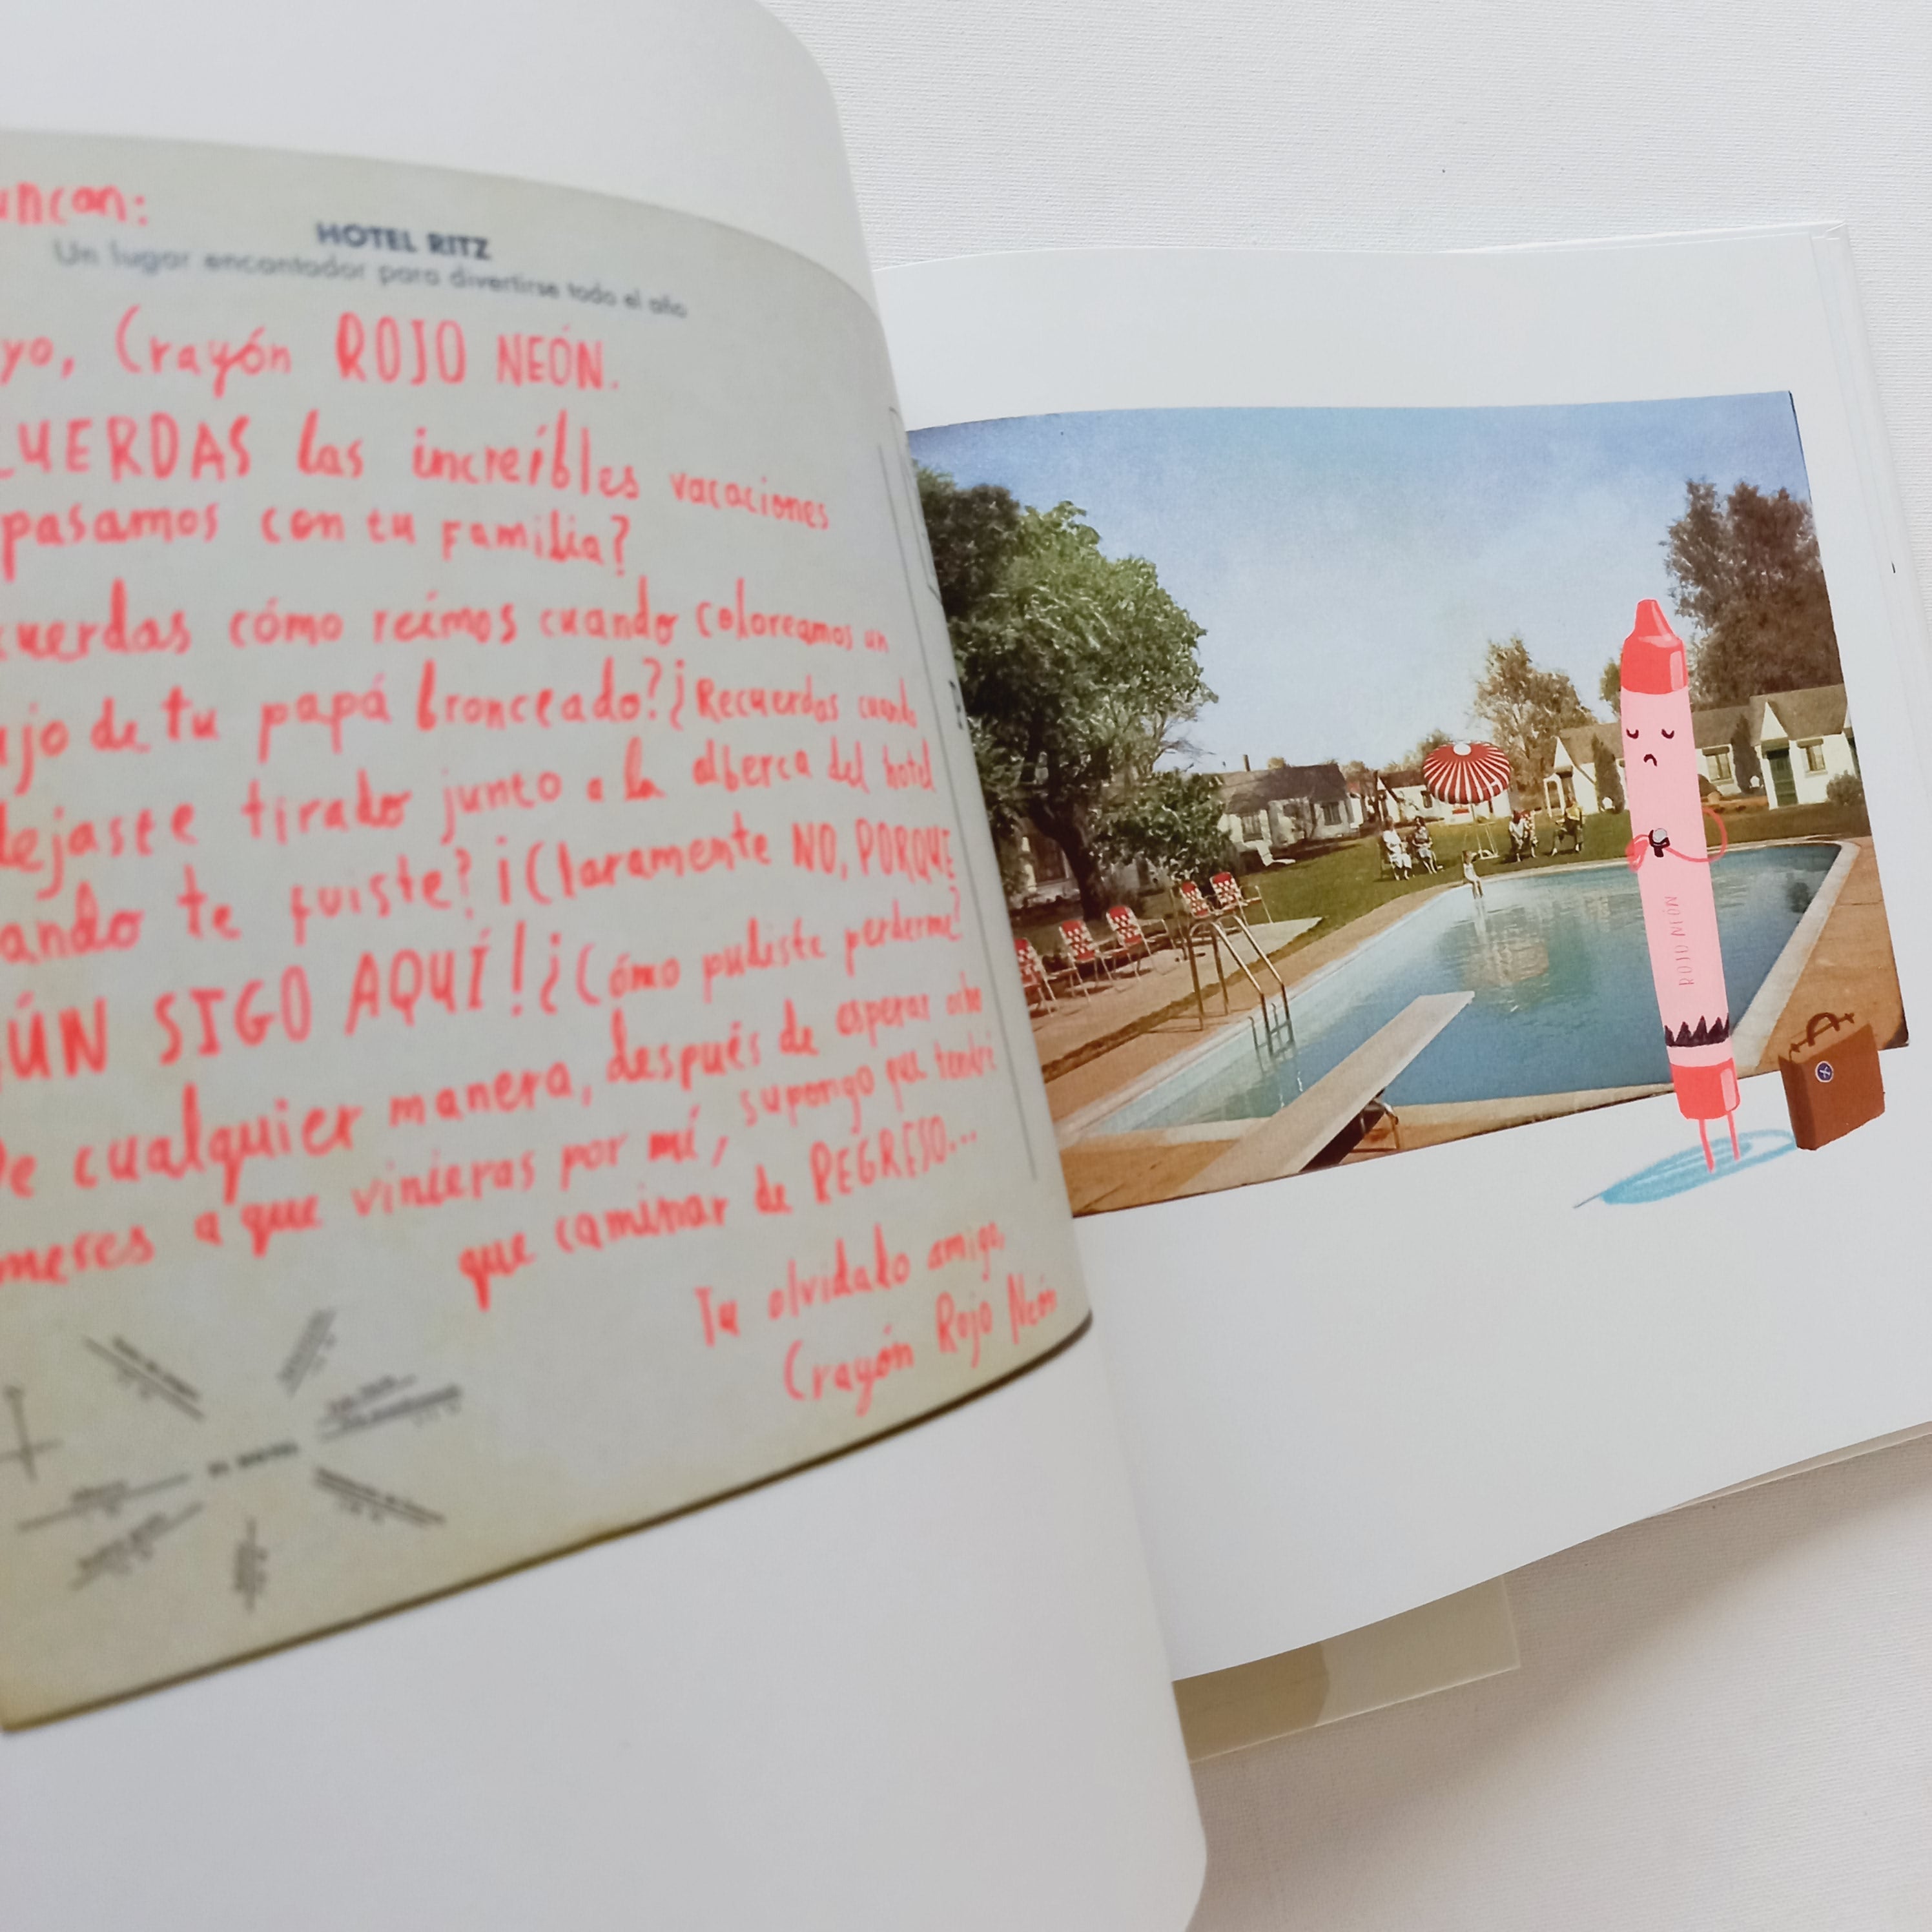 uncan:
HOTEL RITZ
Un lugar encantador para divertirse todo el año
yo, Crayón ROJO NEÓN.
CUERDAS las increíbles vacaciones
pasamos con tu familia?
cuerdas cómo reímos cuando coloreamos un
ujo de tu papá bronceado? ¿Recuerdas cuando
dejaste tirado junto a la alberca del hotel
ando te fuiste? ¡Claramente NO, PORQUE
ÚN SIGO AQUÍ! ¿Cómo pudiste perderme?
De cualquier manera, después de esperar ocho
meses a que vinieras por mí, supongo que tendré
que caminar de REGRESO...
Tu olvidado amigo,
Crayón Rojo Neón
ROJO NEÓN